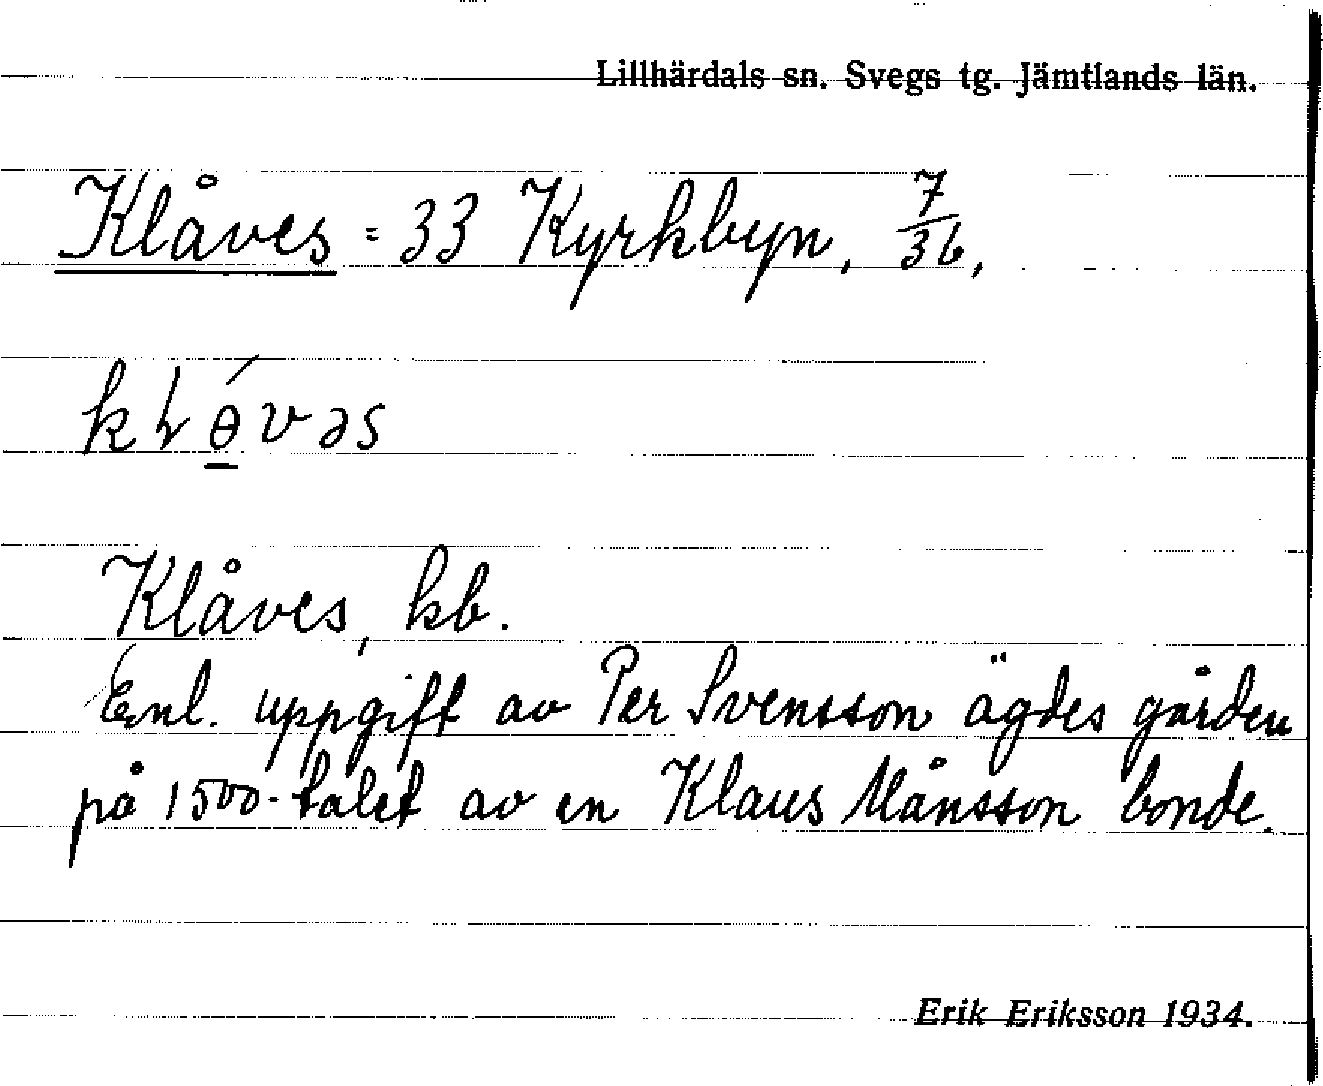 Lillhärdals sn. Svegs tg. Jämtlands län.
Klåves = 33 Kyrkbyn, 7/36,
Klåves, kb.
Enl. uppgift av Per Svensson ägdes gården
på 1500-talet av en Klaus Månsson bonde.
Erik Eriksson 1934.